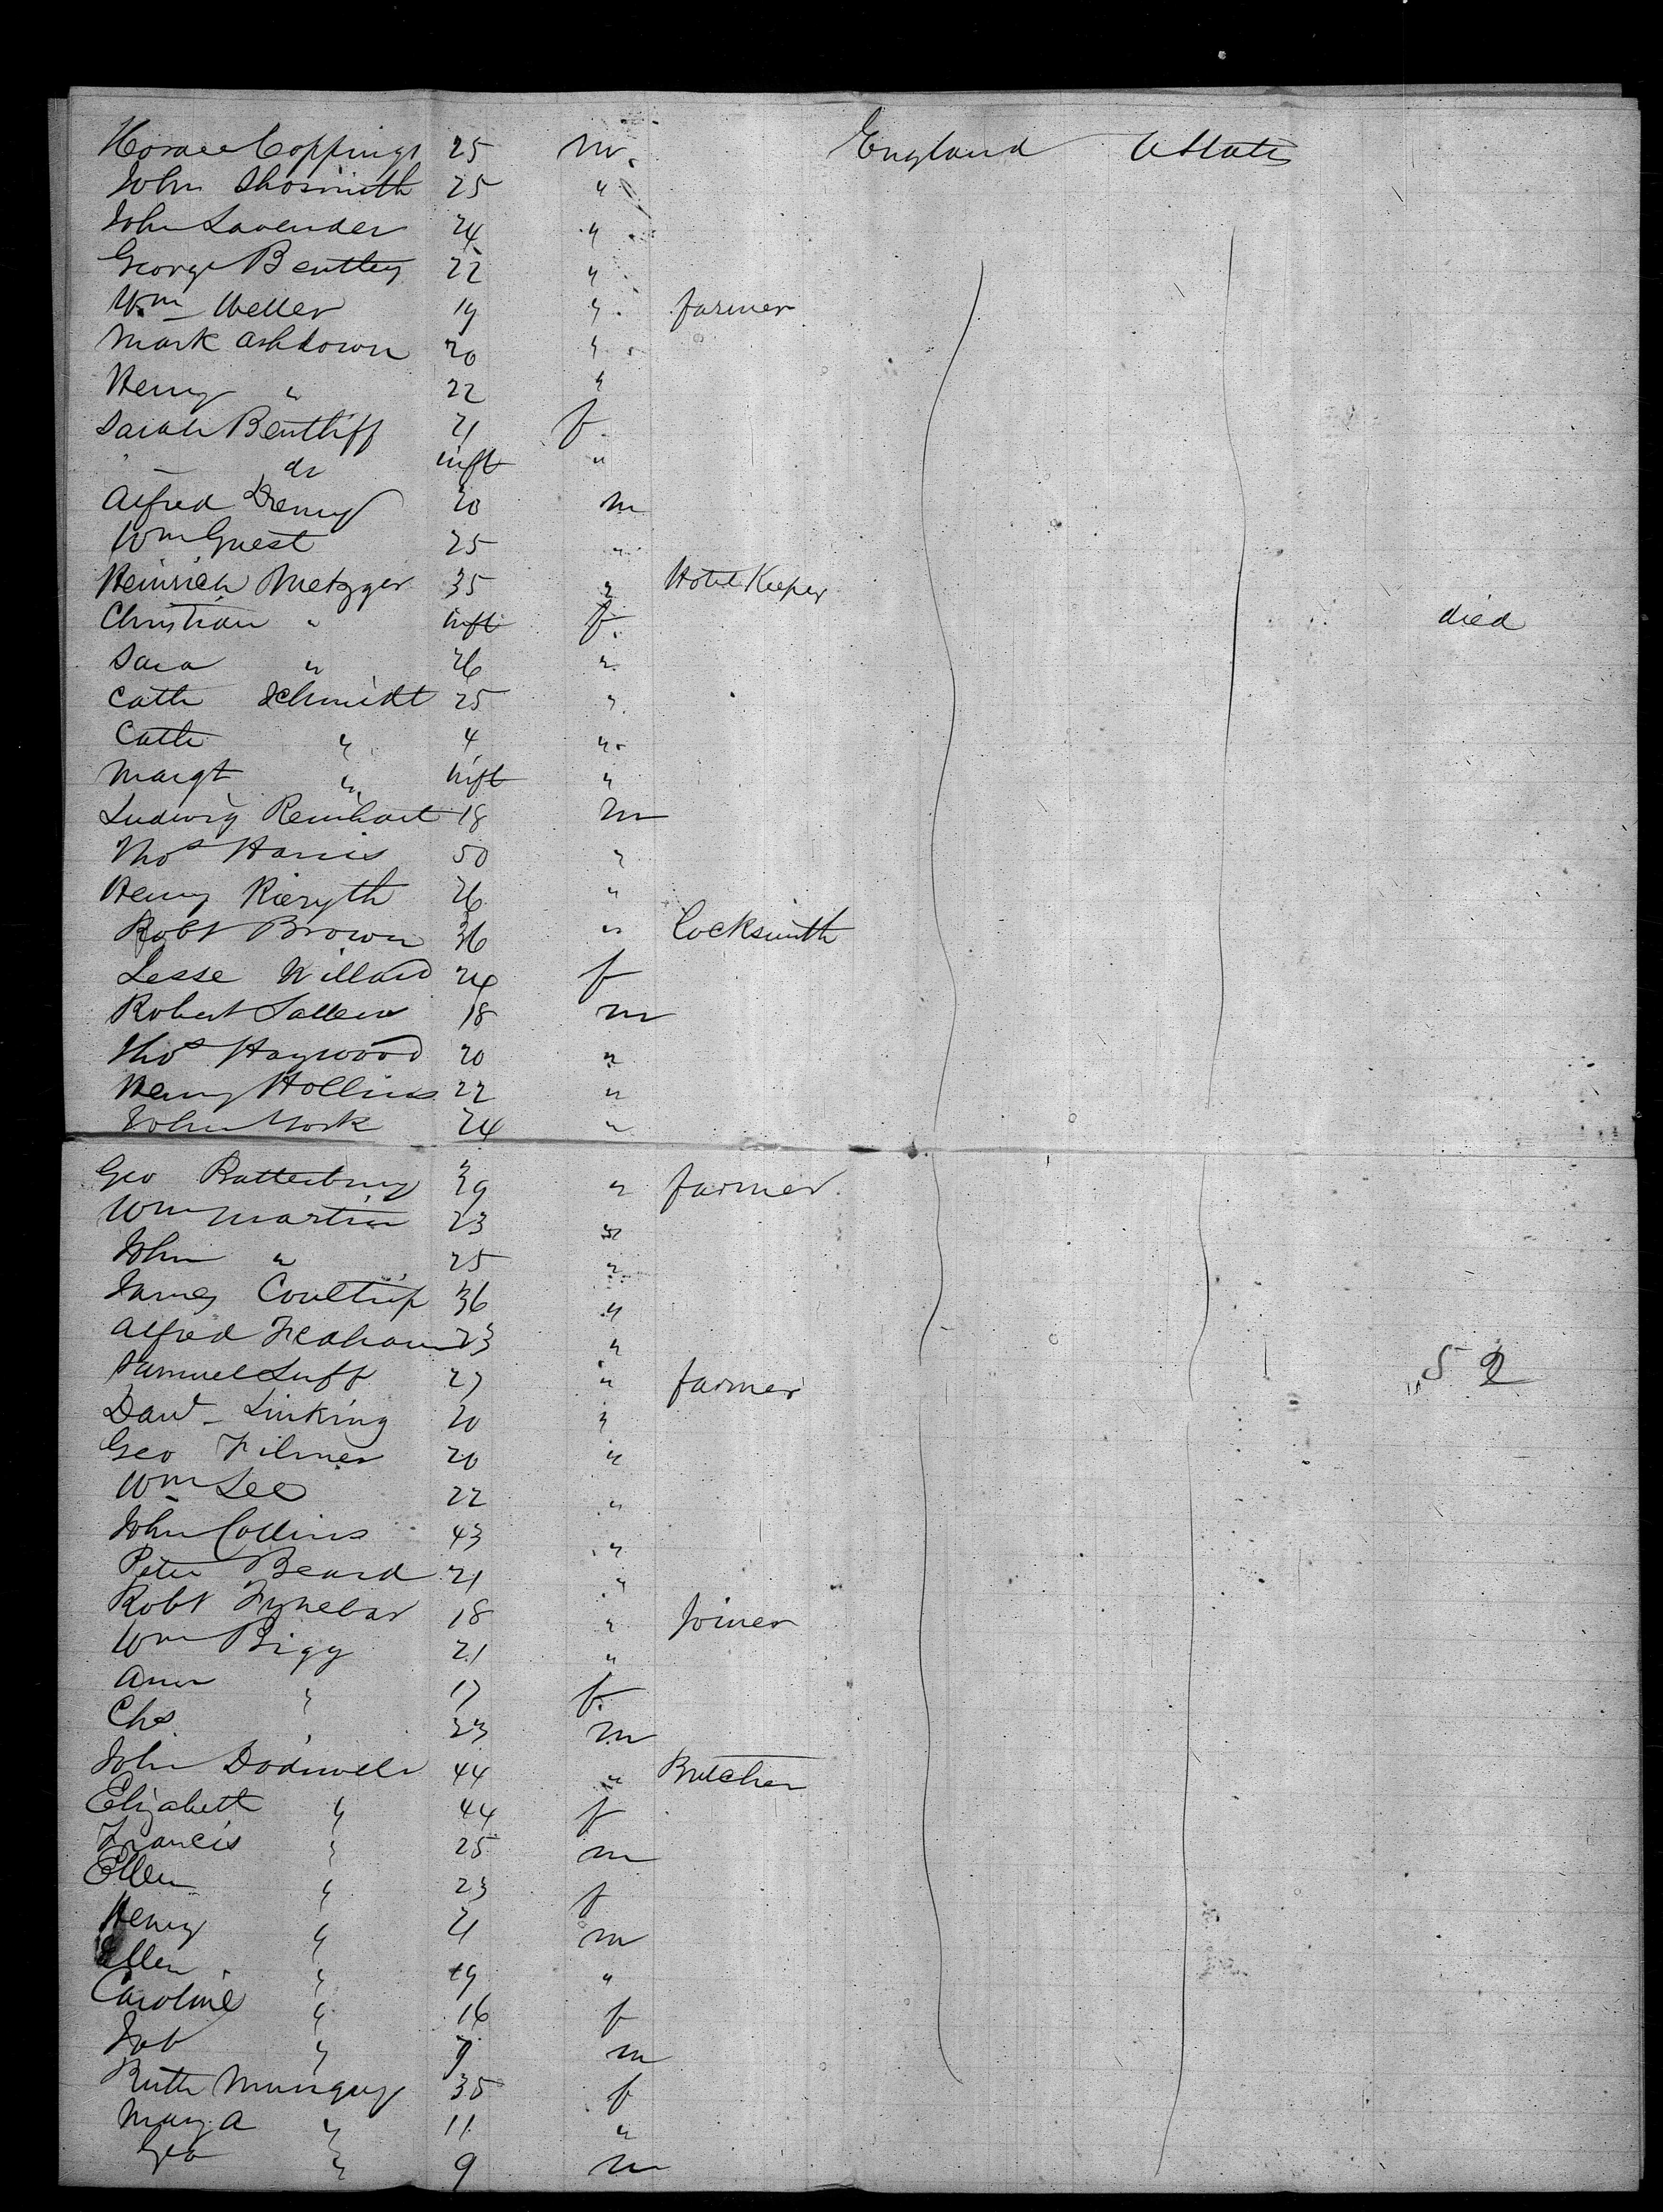 Horace Coppings 25 m. England U States
John Shosmith 25 "
John Lavender 24 "
George Bentley 22 "
Wm Weller 19 " farmer
Mark Ashdown 20 "
Henry " 22 "
Sarah Bentliff 21 f
" do inft "
Alfred Denny 20 m
Wm Guest 25 "
Heinrich Metzger 35 " Hotel Keeper
Christian " inft f. died
Sara " 26 "
Cath Schmidt 25 "
Cath " 4 "
Margt " inft "
Ludwig Reinhart 18 m
Thos Harris 50 "
Henry 26 "
Robt Brown 36 " Locksmith
Jesse Willard 24 f
Robert 18 m
Thos Haywood 20 "
Henry Hollins 22 "
John York 24 "
Geo Batterbury 39 " farmer
Wm Martin 23 "
John " 25 "
James Coultrip 36 "
Alfred 23 "
Samuel Luff 27 " farmer 52
Davd Linking 20 "
Geo Filmer 20 "
Wm Lee 22 "
John Collins 43 "
Peter Beard 21 "
Robt 18 " Joiner
Wm Bigg 21 "
Ann " 17 f.
Chs " 33 m
John Dodwell 44 " Butcher
Elizabeth " 44 f
Francis " 25 m
Ellen " 23 f
Henry " 21 m
Ellen " 19 "
Caroline " 16 f
Job " 7 m
Ruth 35 f
Mary A " 11 "
Geo " 9 m